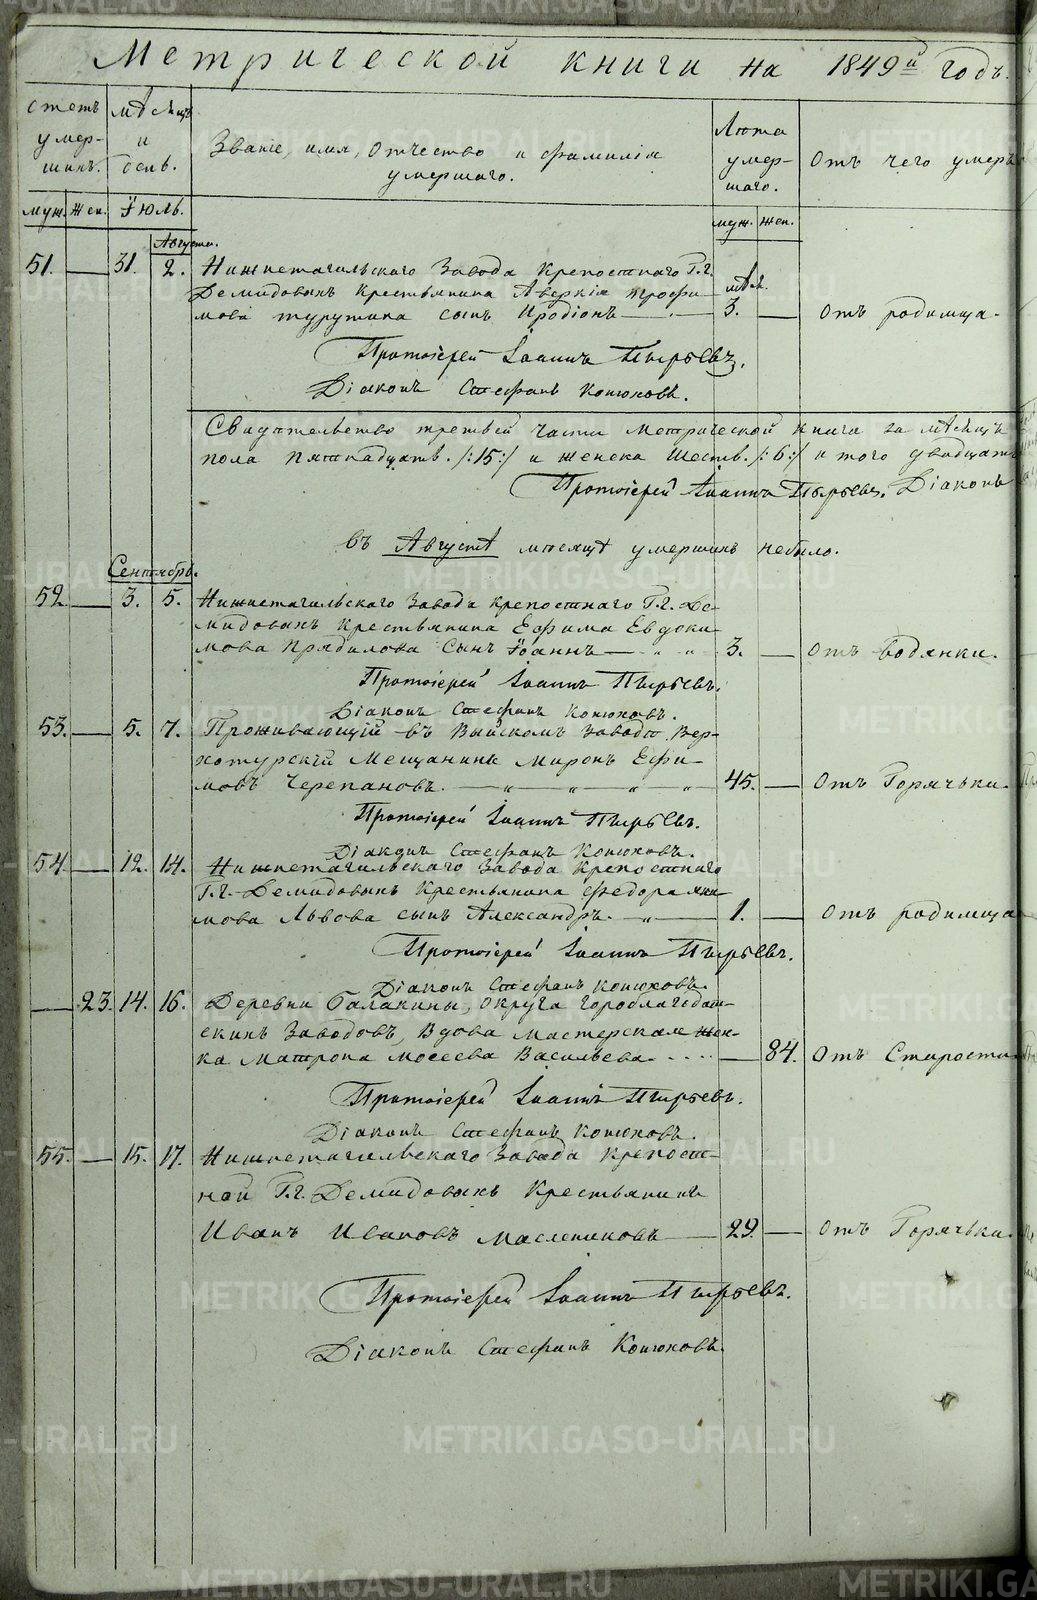 Метрической книги на 1849й годъ.
счетъ умер- шихъ.
мѣсяцъ и день.
Званіе, имя, отчество и фамилія
умершаго.
Лѣта умер- шаго.
Отъ чего умеръ
муж. жен. Іюль.
муж. жен.
Августа.
51. — 31. 2. Нижнетагильскаго Завода крепостнаго Г.г.
Демидовыхъ крестьянина Аверкія Трофи- мѣс.
мова турутина сынъ Иродіонъ — 3. — Отъ родимца.
Протоіерей Іоаннъ Пырьевъ.
Діаконъ Стефанъ Конюховъ.
Свидѣтельство третьей части метрической книги за мѣсяцъ
пола пятнадцать ./:15:/ и женска шесть ./:6:/ и того двадцать
Протоіерей Іоаннъ Пырьевъ. Діаконъ
Въ Августѣ мѣсяцѣ умершихъ небыло.
Сентябрь.
52. — 3. 5. Нижнетагильскаго Завода крепостнаго Г.г. Де-
мидовыхъ крестьянина Ефима Евдоки-
мова Прядилова сынъ Іоаннъ — „ — „ 3. — Отъ водянки.
Протоіерей Іоаннъ Пырьевъ.
Діаконъ Стефанъ Конюховъ.
53. — 5. 7. Проживающій въ Выйскомъ Заводѣ Вер-
хотурскій Мещанинъ Миронъ Ефи-
мовъ Черепановъ. — „ — „ — „ — „ 45. — Отъ Горячьки.
Протоіерей Іоаннъ Пырьевъ.
Діаконъ Стефанъ Конюховъ.
54. — 12. 14. Нижнетагильскаго Завода крепостнаго
Г.г. Демидовыхъ крестьянина Федора
мова Львова сынъ Александръ. — „ — 1. — Отъ родимца
Протоіерей Іоаннъ Пырьевъ.
Діаконъ Стефанъ Конюховъ.
— 23. 14. 16. Деревни Балакины, округа гороблагодат-
скихъ Заводовъ, Вдова мастерская жен-
ка Матрона Мосеева Васильева. . . . . — 84. Отъ Старости
Протоіерей Іоаннъ Пырьевъ.
Діаконъ Стефанъ Конюховъ.
55. — 15. 17. Нижнетагильскаго Завода крепост-
ной Г.г. Демидовыхъ крестьянинъ
Иванъ Ивановъ Маслениковъ — 29. — Отъ Горячьки.
Протоіерей Іоаннъ Пырьевъ.
Діаконъ Стефанъ Конюховъ.
METRIKI.GASO-URAL.RU